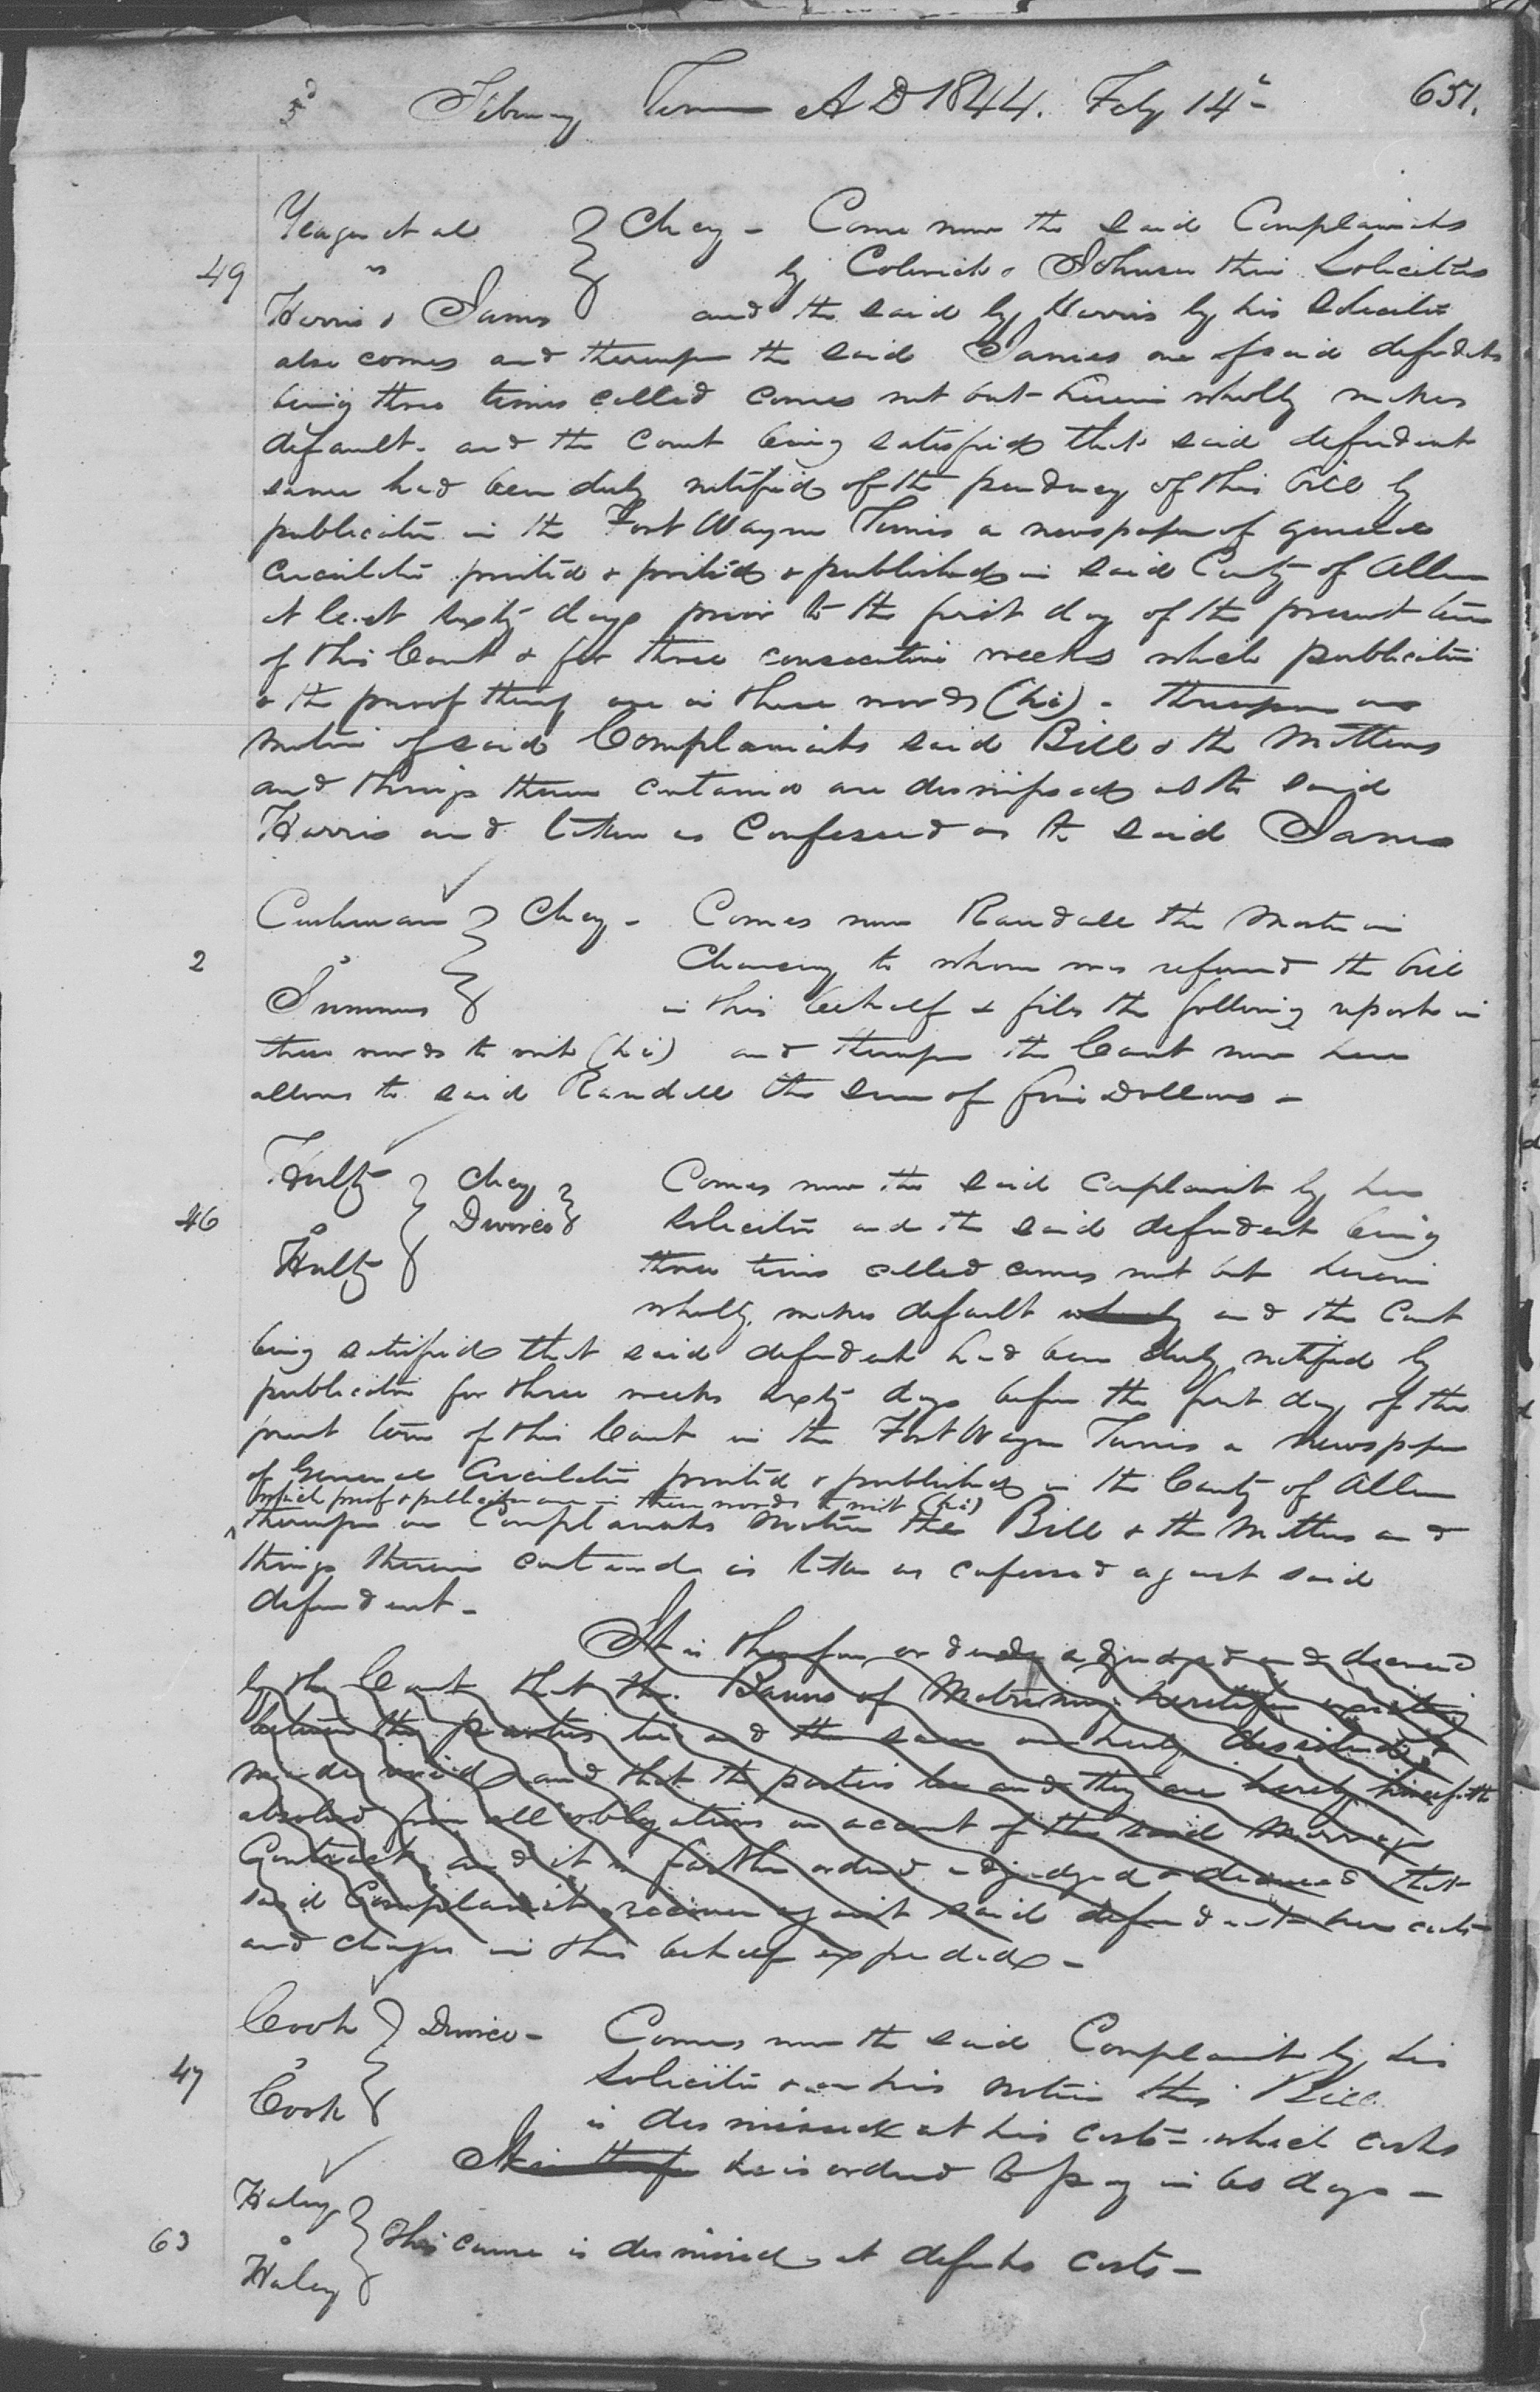 3d February Term A D 1844. Feby 14th 651.
Yeager et al } Chcy - Come now the said Complainants
49 vs by Colerick & Johnson their Solicitors
Harris & James and the said by Harris by his Solicitor
also comes and thereupon the said James one of said defendts
being three times called comes not but herein wholly makes
default - and the Court being satisfied that said defendant
James had been duly notified of the pendency of this bill by
publication in the Fort Wayne Times a newspaper of general
Circulation printed & printed & published in said County of Allen
at least sixty days prior to the first day of the present term
of this Court & for three consecutive weeks which publication
& the proof thereof are in these words (h i) - thereupon on
motion of said Complainants said Bill & the Matters
and things therein contained are dismissed as to said
Harris and taken as Confessed as to said James
Cushman } Chcy - Comes now Randall the Master in
2 v Chancery to whom was referred the bill
Summers in this behalf & files the following report in
these words to wit (h i) and thereupon the Court now here
allows to said Randall the sum of five Dollars -
Hultz } Chcy } Comes now the said Complainant by her
46 v Divorce Solicitor and the said defendant being
Hultz three times called comes not but herein
wholly makes default wholly and the Court
being satisfied that said defendant had been duly notified by
publication for three weeks sixty days before the first day of the
present term of this Court in the Fort Wayne Times a Newspaper
of General Circulation printed & published in the County of Allen
which proof & publication are in these words to wit (h i)
thereupon on Complainants Motion the Bill & the Matters and
things therein contained is taken as confessed against said
defendant -
It is therefore ordered adjudged and decreed
by the Court that the Banns of Matrimony heretofore existing
between the parties be and the same are hereby dissolved &
made void and that the parties be and they are hereby henceforth
absolved from all obligations on account of the said Marriage
Contract, and it is further ordered adjudged & decreed that
said Complainant recover against said defendant her costs
and charges in this behalf expended -
Cook } Divorce - Comes now the said Complainant by his
47 v Solicitor & on his motion this Bill
Cook is dismissed at his costs - which costs
It is therefore he is ordered to pay in 60 days -
Haley
63 v } This cause is dismissed at defendts costs -
Haley